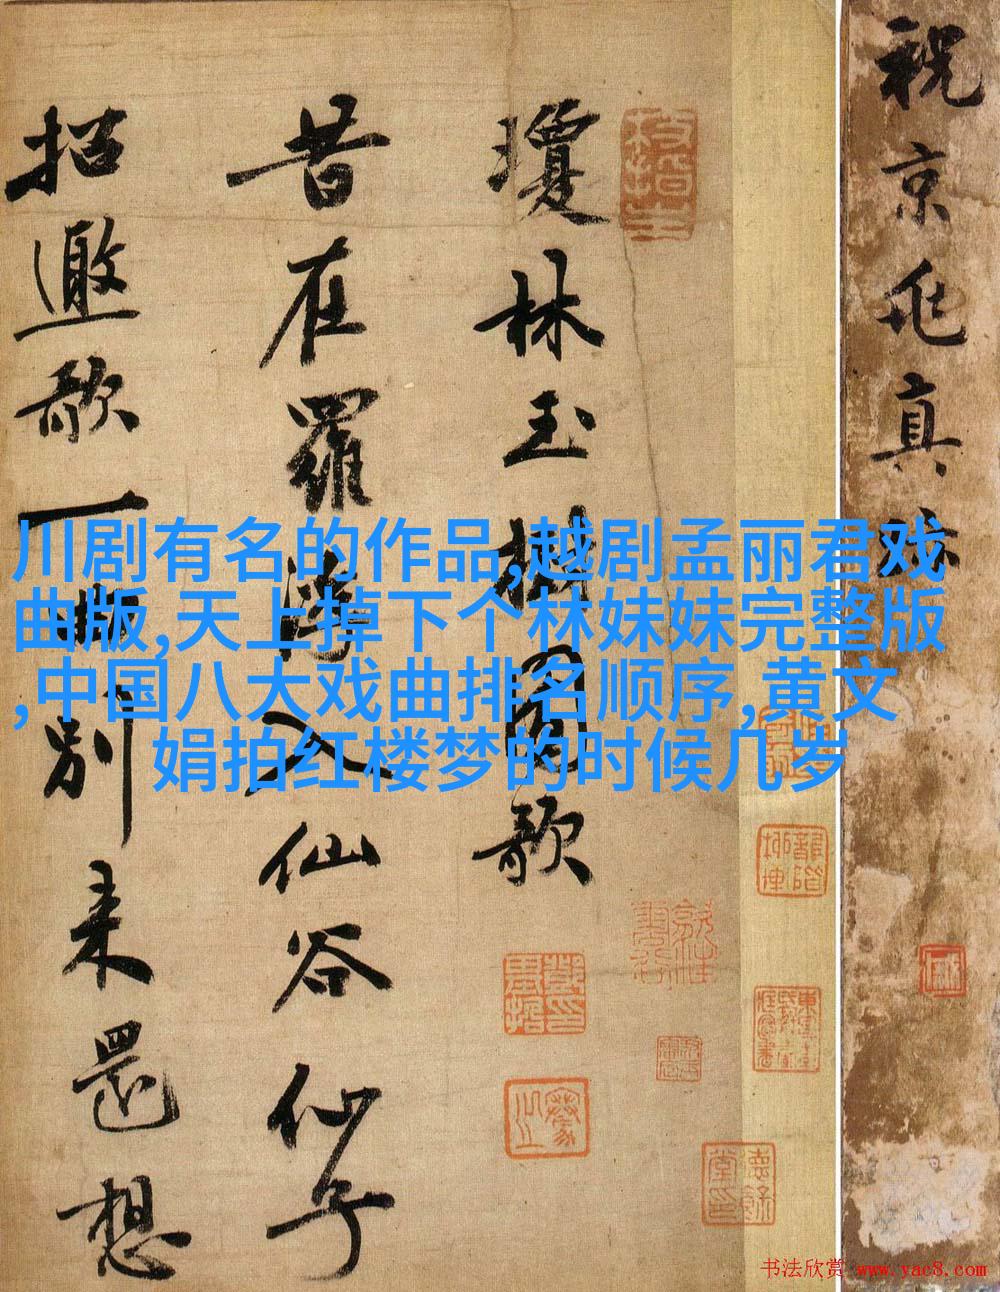 祝京兆真
瓊林玉樹圖歌
昔在羅浮入仙谷仙子
招邀歌一曲別來還想
枝指生
川剧有名的作品,越剧孟丽君戏
曲版,天上掉下个林妹妹完整版
,中国八大戏曲排名顺序,黄文
娟拍红楼梦的时候几岁
书法欣赏 www.yac8.com